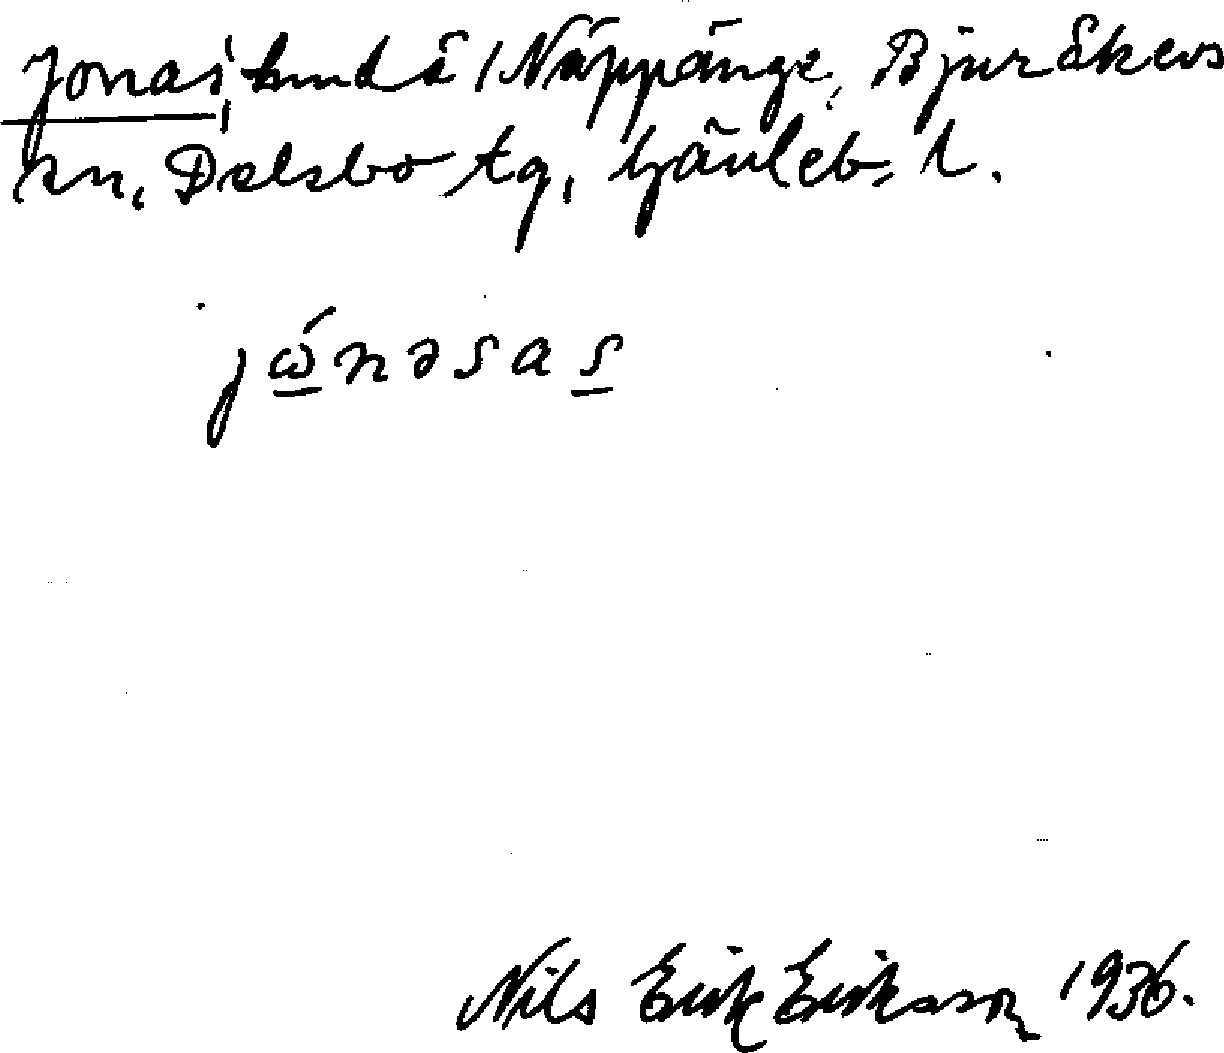 Jonas, hmd å 1 Näppänge, Bjuråkers
sn, Delsbo tg, Gävleb. l.
jώnəsas
Nils Erik Eriksson 1936.